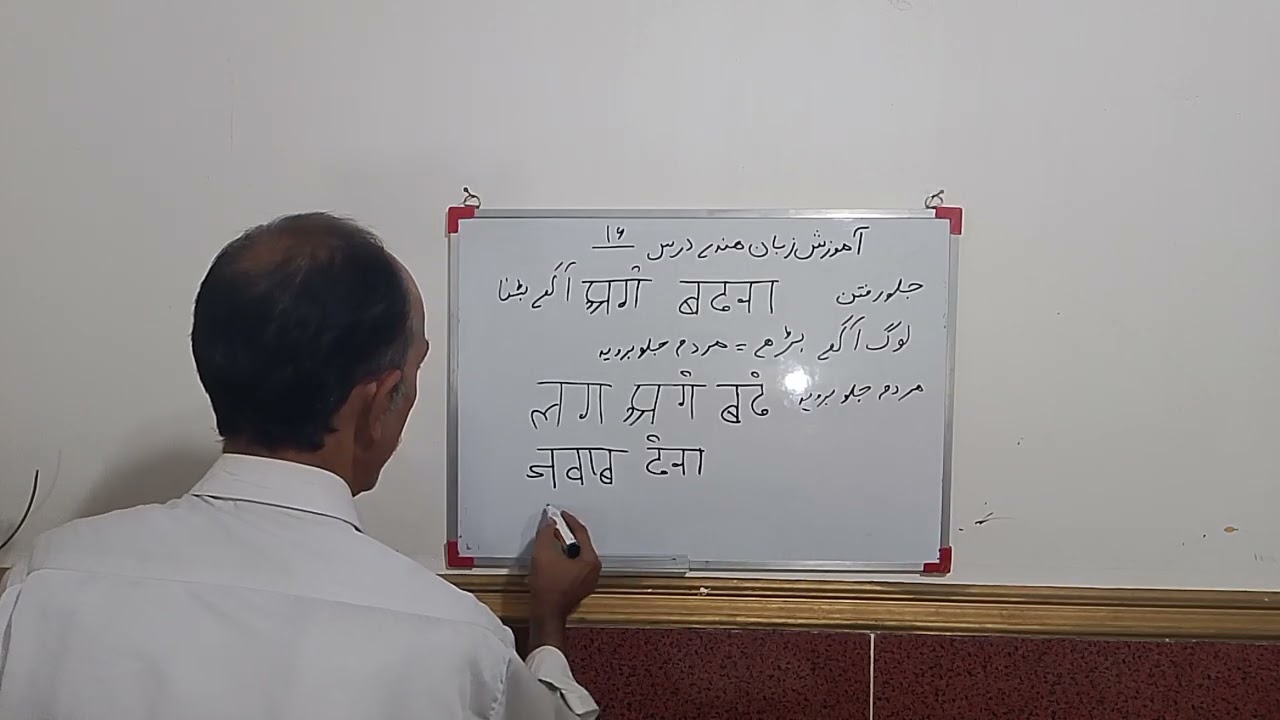 آموزش زبان هندی درس ۱۶
جلو رفتن बढना آگے بڑنا
لوگ آگے بڑھے = مردم جلو بروید
लग बढं مردم جلو بروید
जवाब देना